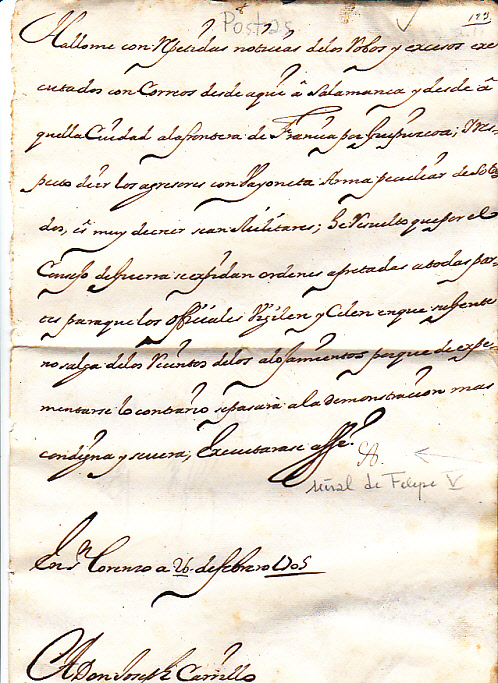 Postas
Hallome con Repetidas noticias delos Robos y excesos exe
cutados con Correos desde aqui â Salamanca y desde â
quella Ciudad ala frontera de Francia por Guipuzcoa; Y Res
pecto de ir los agresores con Vayoneta Arma peculiar de Solda
dos, es muy de creer sean Militares; He Resuelto que por el
Consejo de Guerra se expidan ordenes apretadas atodas par
tes para que los Officiales Vigilen y Celen en que su gente
no salga delos Recintos delos alojamientos porque de expe
rimentarse lo contrario se pasara ala demonstracion mas
condigna y severa; Executarase assi.
señal de Felipe V
En Sn Lorenzo a 26 de febrero 1705
A Don Joseph Carrillo